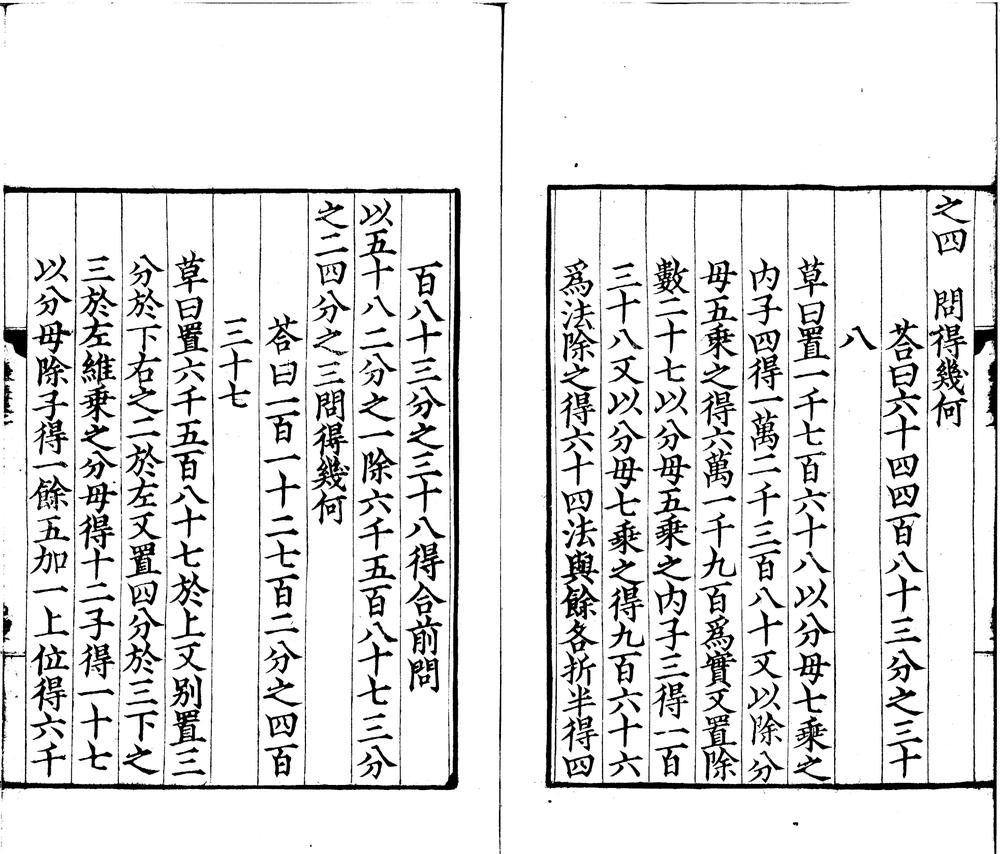 之四　問得幾何
荅曰六十四四百八十三分之三十
八
草曰置一千七百六十八以分母七乘之
内子四得一萬二千三百八十又以除分
母五乘之得六萬一千九百爲實又置除
數二十七以分母五乘之内子三得一百
三十八又以分母七乘之得九百六十六
爲法除之得六十四法與餘各折半得四
百八十三分之三十八得合前問
以五十八二分之一除六千五百八十七三分
之二四分之三問得幾何
荅曰一百一十二七百二分之四百
三十七
草曰置六千五百八十七於上又别置三
分於下右之二於左又置四分於三下之
三於左維乘之分母得十二子得一十七
以分母除子得一餘五加一上位得六千